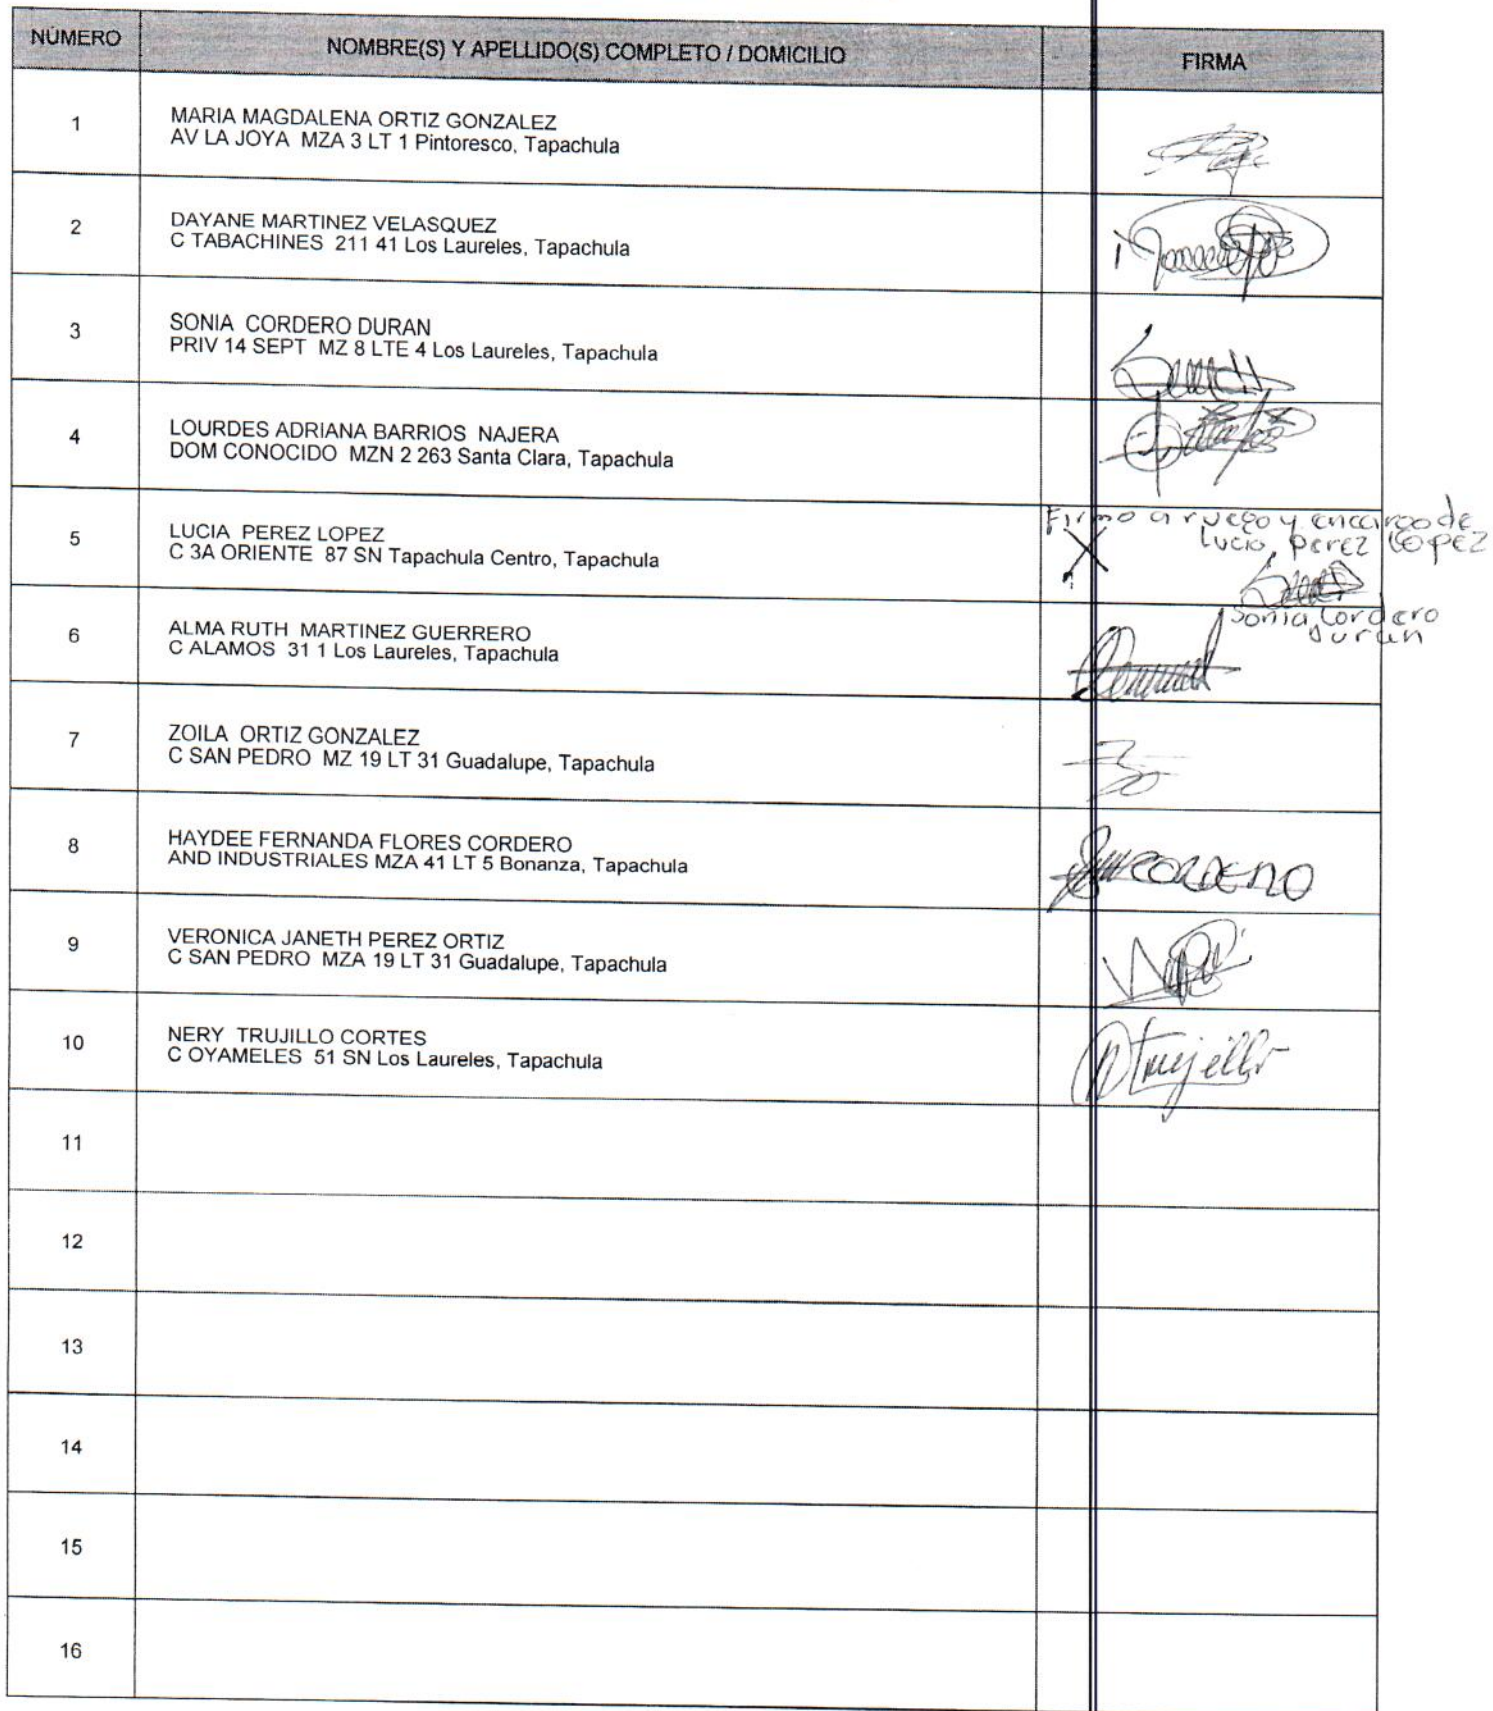 NÚMERO NOMBRE(S) Y APELLIDO(S) COMPLETO / DOMICILIO FIRMA
1 MARIA MAGDALENA ORTIZ GONZALEZ
AV LA JOYA MZA 3 LT 1 Pintoresco, Tapachula
2 DAYANE MARTINEZ VELASQUEZ
C TABACHINES 211 41 Los Laureles, Tapachula
3 SONIA CORDERO DURAN
PRIV 14 SEPT MZ 8 LTE 4 Los Laureles, Tapachula
4 LOURDES ADRIANA BARRIOS NAJERA
DOM CONOCIDO MZN 2 263 Santa Clara, Tapachula
5 LUCIA PEREZ LOPEZ
C 3A ORIENTE 87 SN Tapachula Centro, Tapachula
Firmo a ruego y encargo de
Lucia perez Lopez
X
Sonia Cordero
Duran
6 ALMA RUTH MARTINEZ GUERRERO
C ALAMOS 31 1 Los Laureles, Tapachula
7 ZOILA ORTIZ GONZALEZ
C SAN PEDRO MZ 19 LT 31 Guadalupe, Tapachula
8 HAYDEE FERNANDA FLORES CORDERO
AND INDUSTRIALES MZA 41 LT 5 Bonanza, Tapachula
CORDERO
9 VERONICA JANETH PEREZ ORTIZ
C SAN PEDRO MZA 19 LT 31 Guadalupe, Tapachula
10 NERY TRUJILLO CORTES
C OYAMELES 51 SN Los Laureles, Tapachula
NTrujillo
11
12
13
14
15
16